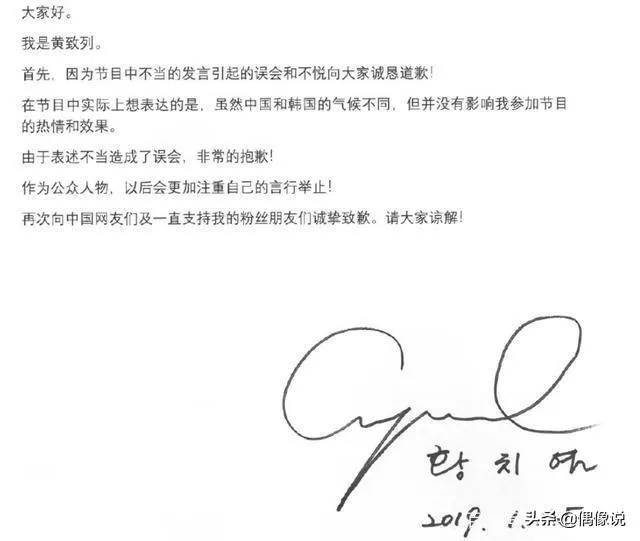 大家好。
我是黄致列。
首先，因为节目中不当的发言引起的误会和不悦向大家诚恳道歉！
在节目中实际上想表达的是，虽然中国和韩国的气候不同，但并没有影响我参加节目
的热情和效果。
由于表述不当造成了误会，非常的抱歉！
作为公众人物，以后会更加注重自己的言行举止！
再次向中国网友们及一直支持我的粉丝朋友们诚挚致歉。请大家谅解！
황치열
2019. 1.
头条@偶像说